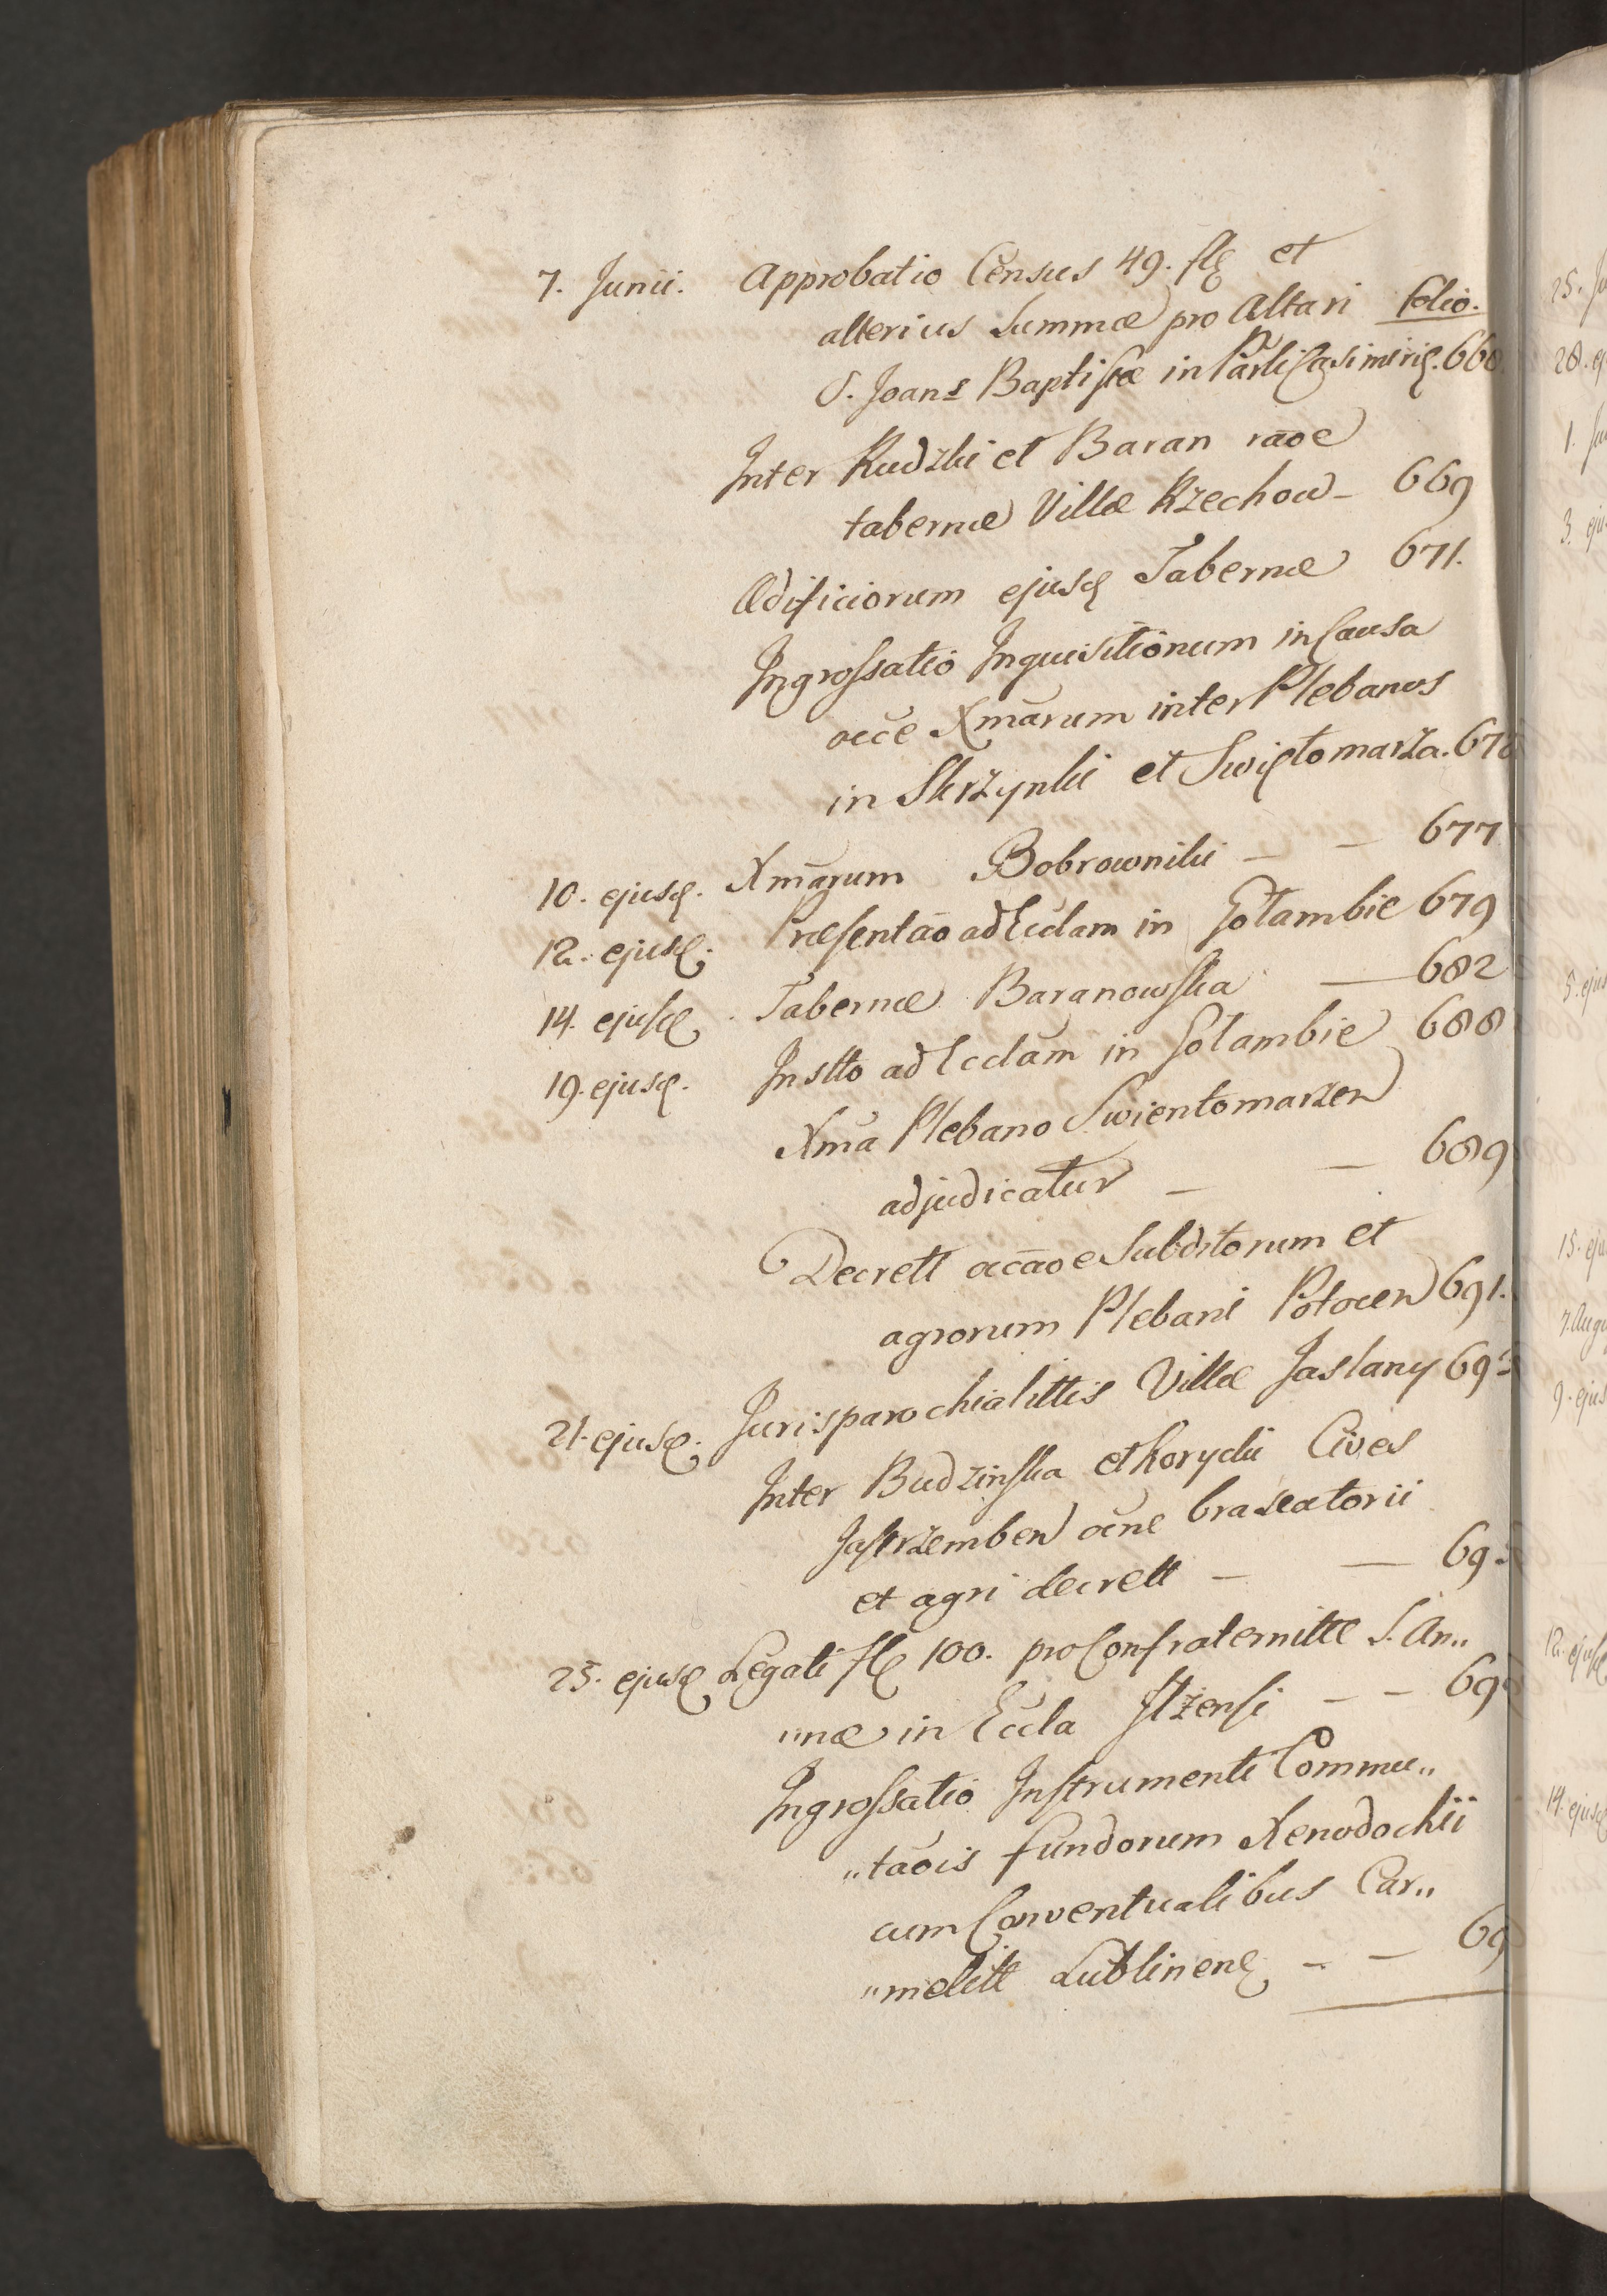 7. Junii. Approbatio Census 49. fl et
alterius Summæ pro Altari folio.
S. Joans Baptistæ in Parli Casimirien. 668
Inter Rudzki et Baran raōe
tabernæ Villæ Rzechow - 669
Ædificiorum ejusd Tabernæ 671.
Ingrossatio Inquisitionum in Causa
occe Xmārum inter Plebanos
in Skrzynki et Swiętomarza. 67
10. ejusd. Xmārum Bobrowniki - - 677
12. ejusd. Præsentāo ad Eccłam in Gołambie 679
14. ejusd. Tabernæ Baranowska — 682
19. ejusd. Instto ad Eccłam in Gołambie 688
Xma Plebano Swientomarzen
adjudicatur - - 689
Decrett occāoe Subditorum et
agrorum Plebani Potocen 691.
21. ejusd. Juris parochialittis Villæ Jaslany 69
Inter Budzinska et Korycki Cives
Jastrzemben occne braseatorii
et agri decrett - - 69
25. ejusd Legati fl 100. pro Confraternitte S. An„
„næ in Eccla Ilzensi - - 69
Ingrossatio Instrumenti Commu„
„tāois fundorum Xenodochii
cum Conventualibus Car„
„melitt Lublinen - - 69
25.
28.
1.
3. eju
5. ejus
15. eju
7. Aug
9. ejus
12. ejusd
14. ejusd